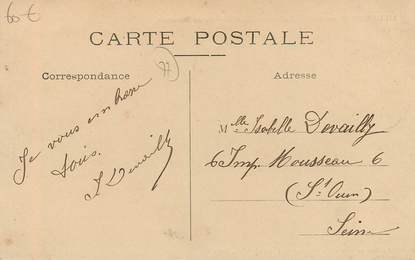 60 €
CARTE POSTALE
77
Correspondance
Adresse
Je vous embrasse
tous.
I Devailly
Mlle Isabelle Devailly
6 Imp. Mousseau 6
(St Ouen)
Seine